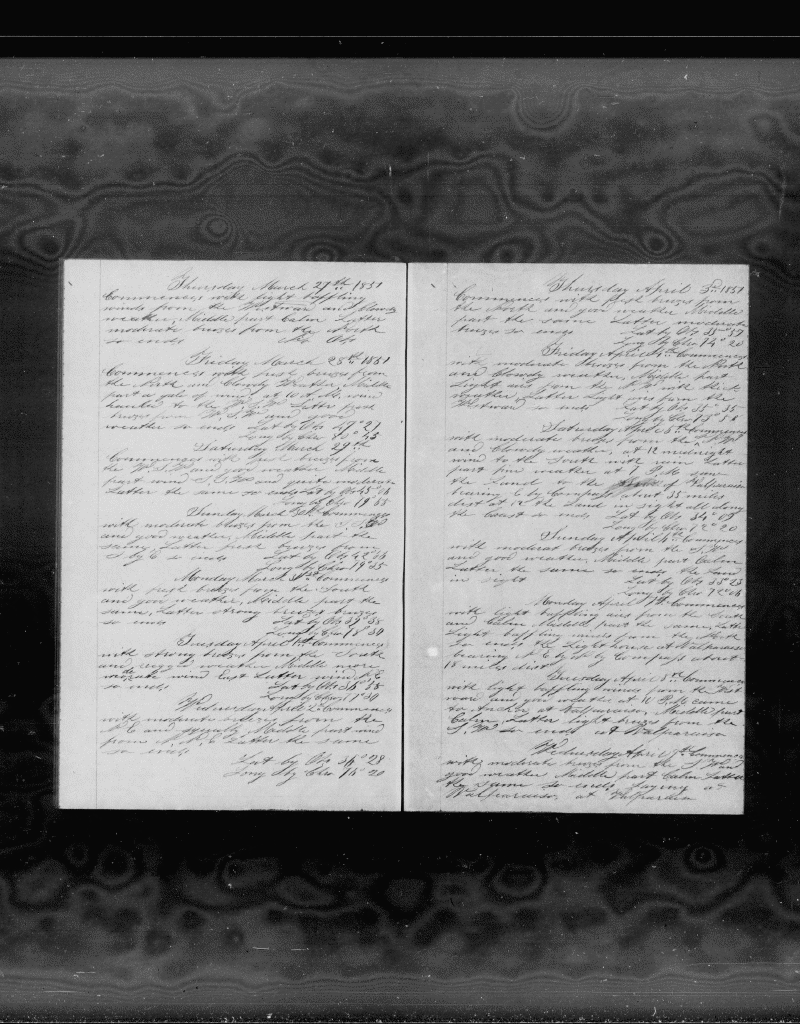 Thursday March 27th 1851
Commences with light baffling
winds from the Westward and Cloudy
weather, Middle part Calm Latter
moderate brezes from the North
so ends No Obs
Friday March 28th 1851
Commences with fresh brezes from
the North and Cloudy Weather, Middle
part a gale of wind at 10 A.M. wind
to the Latter fresh
brezes from W.S.W. and good
weather so ends Lat by Obs 47° 21
Long by Chro 43
Saturday March 29th
Commences with fresh brezes from
the W.S.W. and good weather Middle
part wind S.S.W. and quite moderate
Latter the same so ends Lat by Obs 45° 06
Long by Chro 79° 55
Sunday March 30th Commences
with moderate brezes from the
and good weather, Middle part the
same, Latter fresh brezes from
so ends Lat by Obs 42°
Long by Chro 79° 25
Monday March 31st Commences
with fresh brezes from the South
and good weather, Middle part the
same, Latter strong brezes
so ends Lat by Obs 39° 38
Long by Chro 78° 30
Tuesday April 1st Commences
with strong brezes from the South
and rugged weather Middle more
moderate wind East Latter wind N.E
so ends Lat by Obs 36° 38
Long by Chro
Wednesday April 2d Commences
with moderate brezes from the
N.E and squally Middle part wind
from Latter the same
so ends
Lat by Obs 36° 28
Long by Chro 74° 20
Thursday April 3d 1851
Commences with fresh brezes from
the North and good weather Middle
part the same Latter moderate
brezes so ends Lat by Obs 35° 57
Long by Chro 74° 20
Friday April 4th Commences
with moderate brezes from the North
and Cloudy weather, Middle part
Light airs from the N.W with thick
Weather, Latter Light airs from the
Westward so ends Lat by Obs 35° 35
Long by Chro 73° 54
Saturday April 5th Commences
with moderate brezes from the S.W.
and Cloudy weather, at 12 midnight
wind to the South with rain Latter
part fine weather at 7 A.M saw
the Land to the of Valparaiso
bearing E by Compass about 35 miles
dist at 12 the Land in sight all along
the Coast so ends Lat by Obs 34° 09
Long by Chro 72° 20
Sunday April 6th Commences
with moderate brezes from the S.W
and good weather, Middle part Calm
Latter the same so ends the Land
in sight Lat by Obs 33° 23
Long by Chro 72° 06
Monday April 7th Commences
with light baffling airs from the South
and Calm Middle part the same, Latter
Light baffling winds from the North
so ends the Light house at Valparaiso
bearing by Compass about
18 miles dist
Tuesday April 8th Commences
with light baffling winds from the West
ward and good weather at 10 P.M. came
to Anchor at Valparaiso Middle part
Calm, Latter light brezes from the
S.W. so ends at Valparaiso
Wednesday April 9th Commences
with moderate brezes from the S.W. and
good weather Middle part Calm Latter
the same so ends Laying at
Valparaiso, at Valparaiso